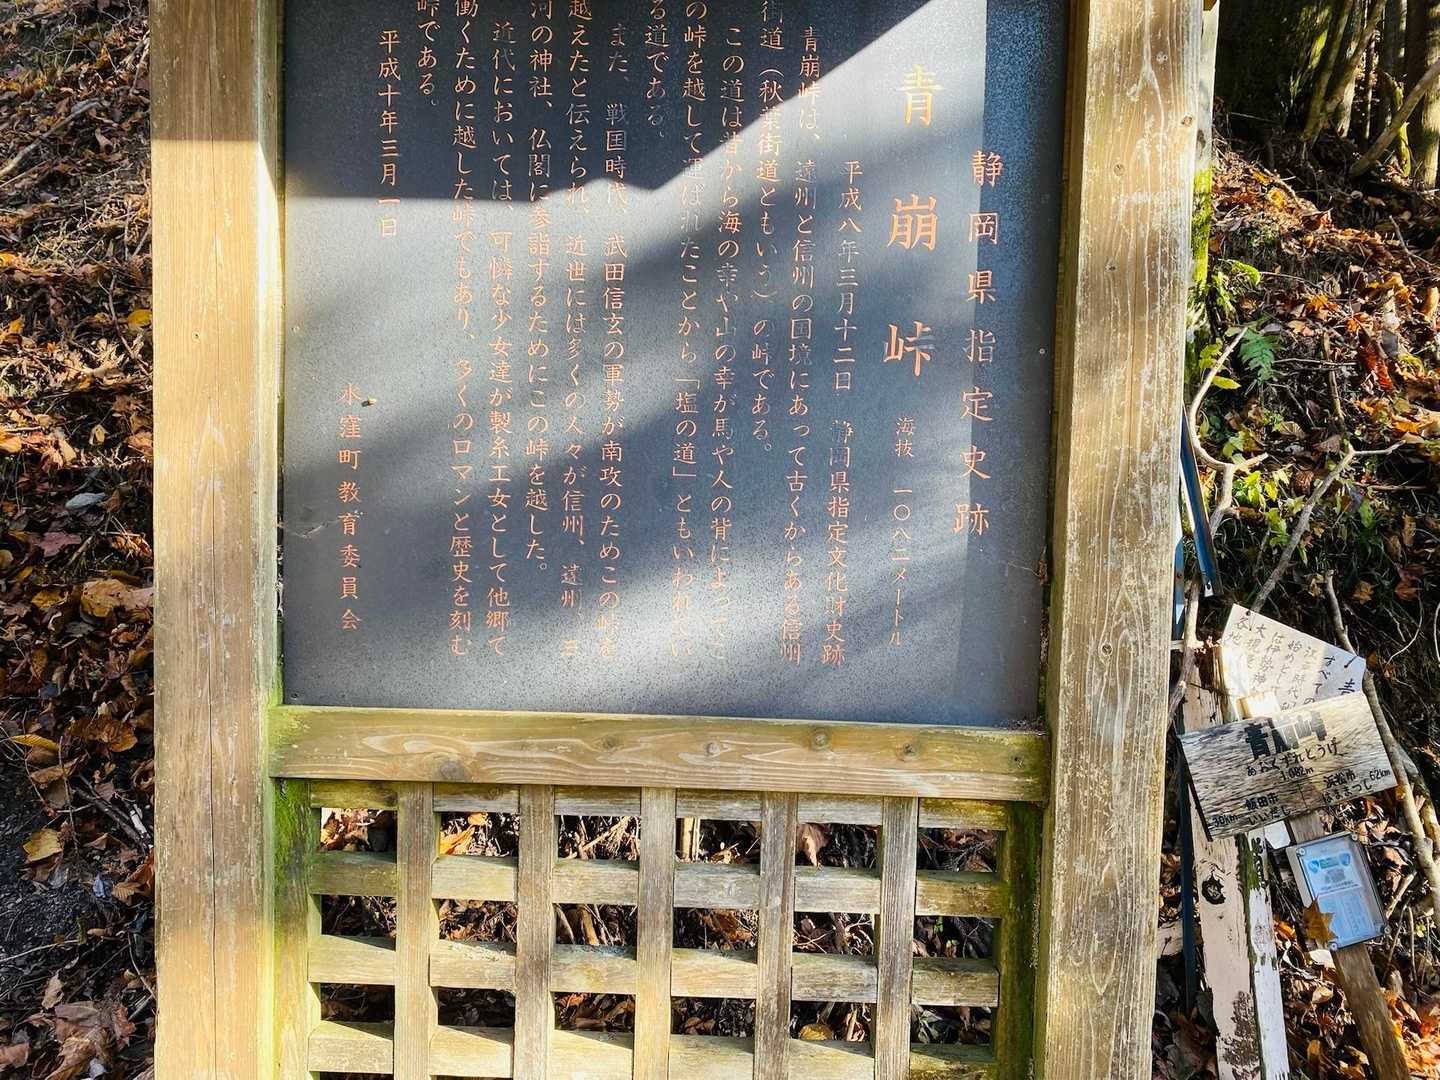 静岡県指定史跡
青崩峠 海抜 一〇八二メートル
平成八年三月十二日 静岡県指定文化財史跡
青崩峠は、遠州と信州の国境にあって古くからある信州
街道（秋葉街道ともいう）の峠である。
この道は昔から海の幸や山の幸が馬や人の背によってこ
の峠を越して運ばれたことから「塩の道」ともいわれてい
る道である。
また、戦国時代、武田信玄の軍勢が南攻のためこの峠を
越えたと伝えられ、近世には多くの人々が信州、遠州、三
河の神社、仏閣に参詣するためにこの峠を越した。
近代においては、可憐な少女達が製糸工女として他郷で
働くために越した峠でもあり、多くのロマンと歴史を刻む
峠である。
平成十年三月一日
水窪町教育委員会
すべての
江戸時代
始め
大
各地
青崩峠
あおくずれとうげ
1,082m
浜松市 62km
はままつし
飯田市
30km いいだし